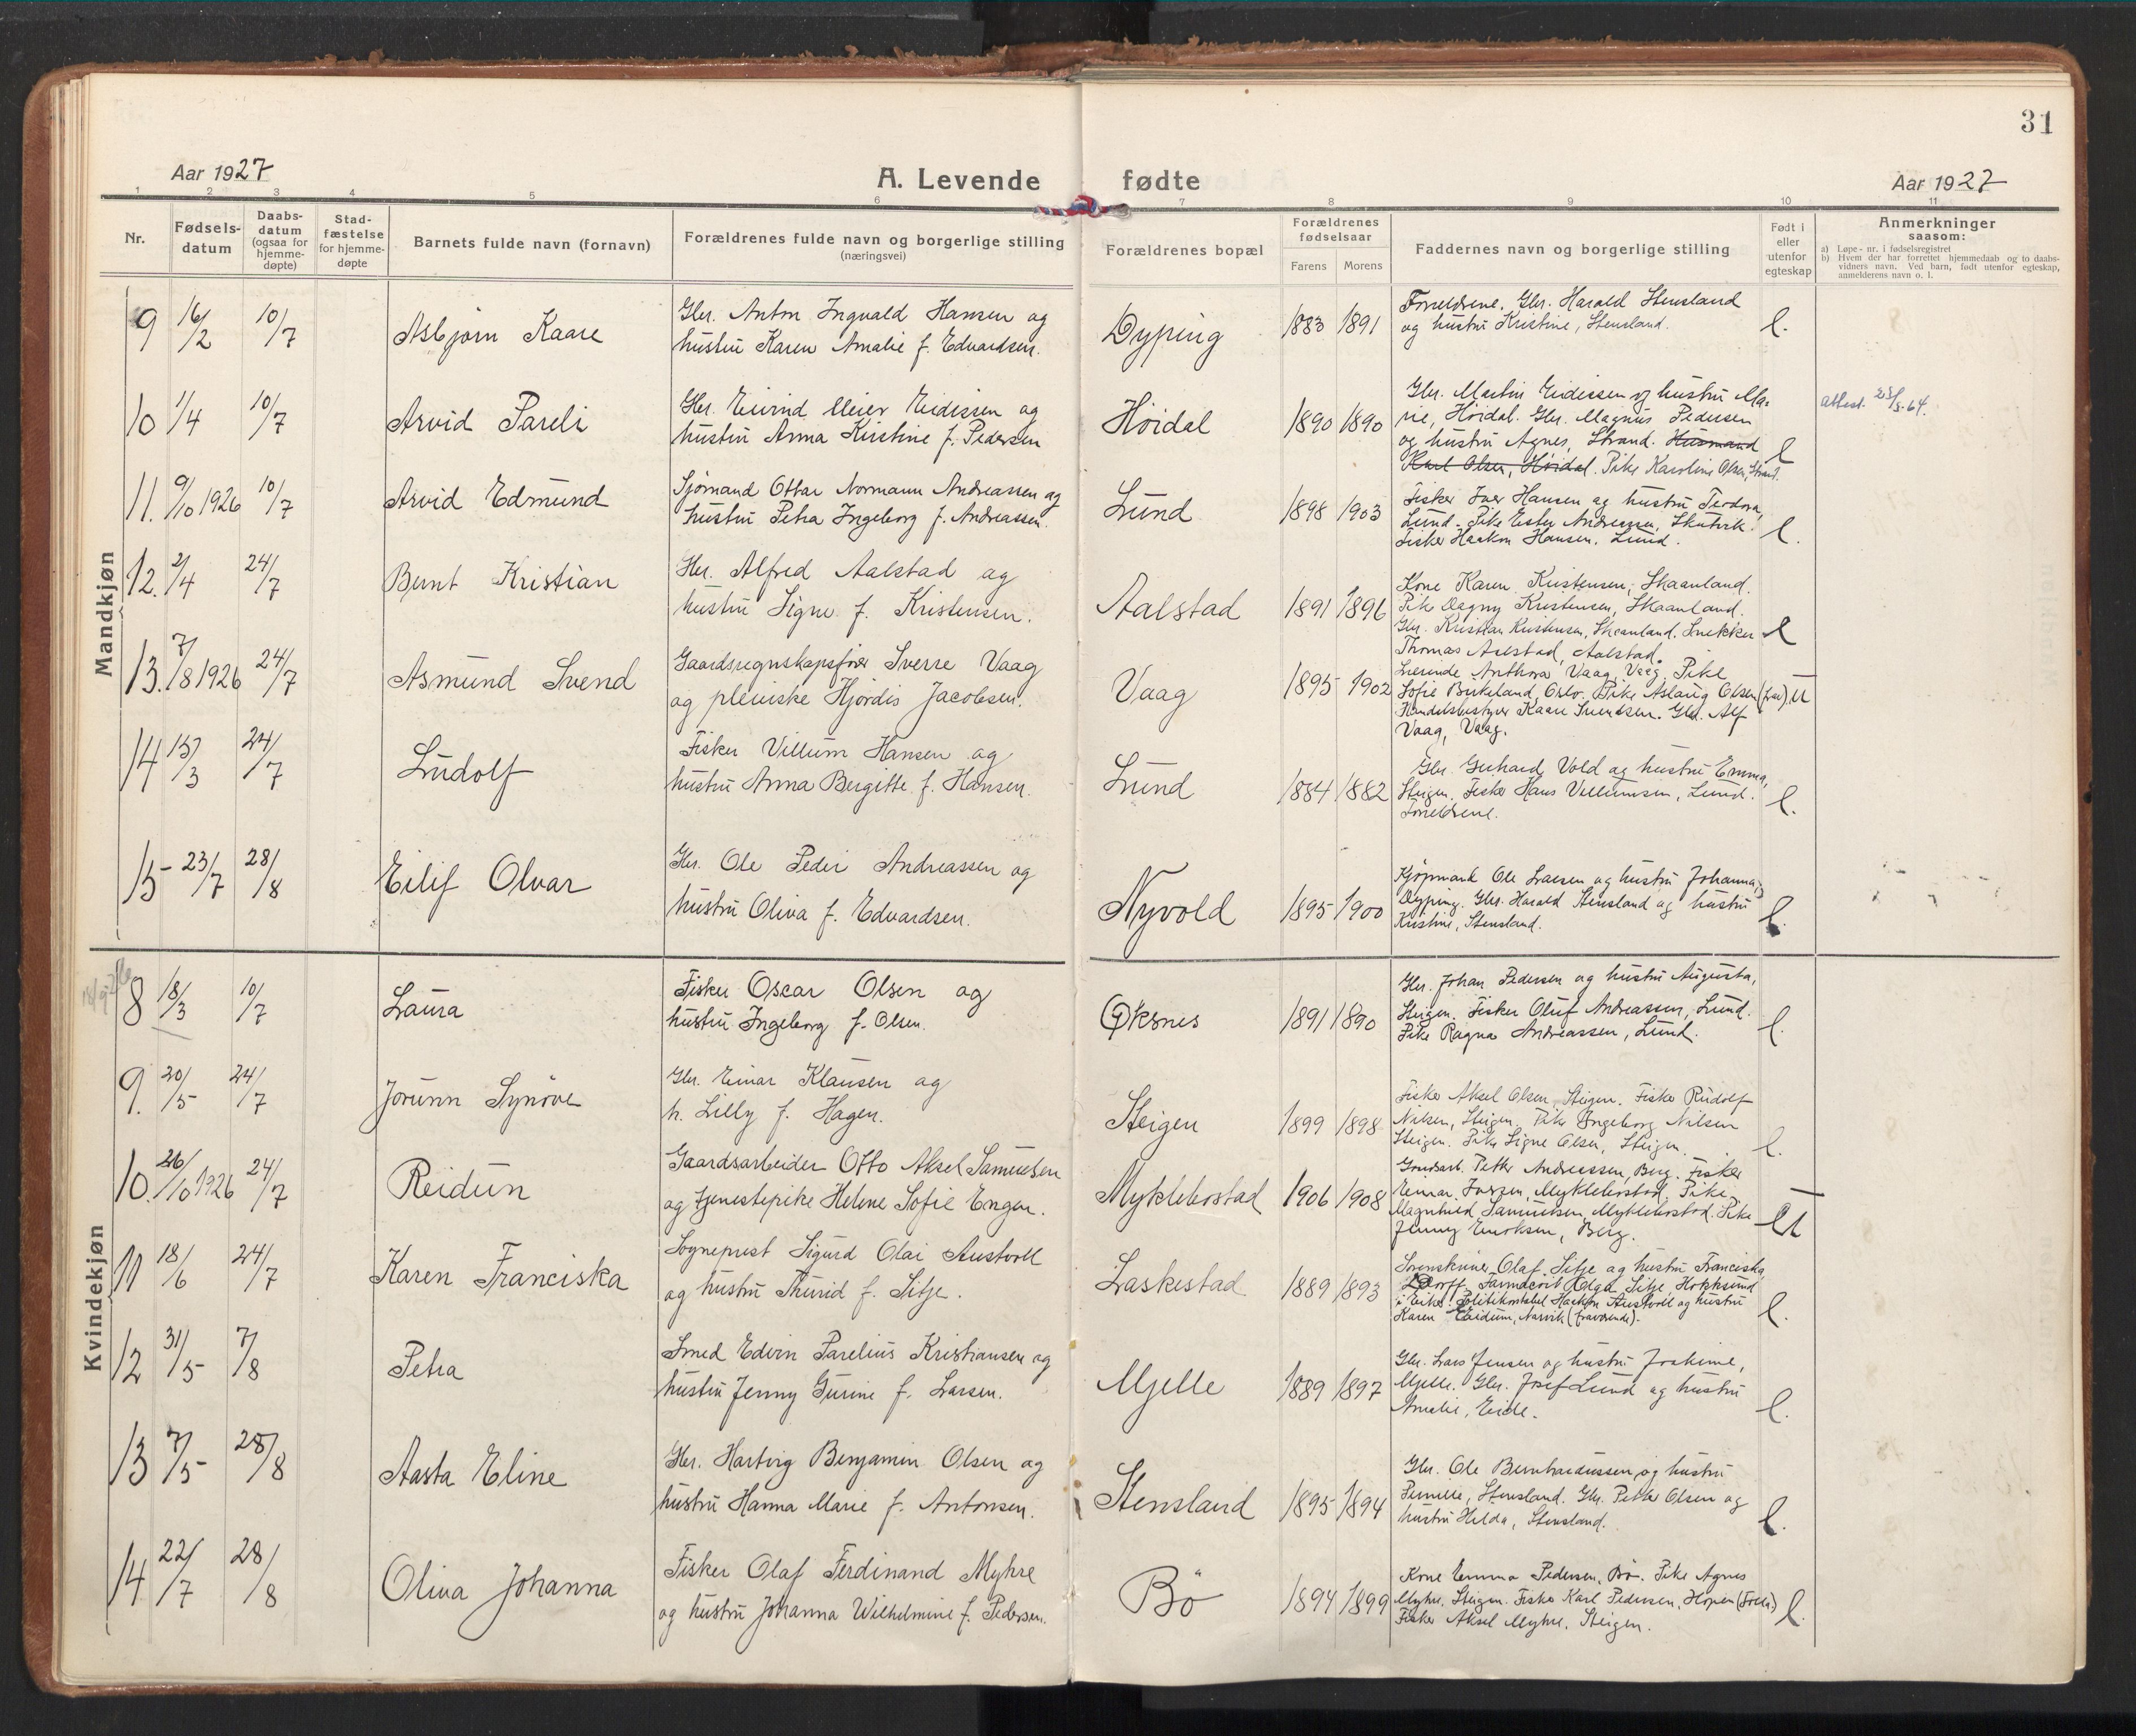 31
Aar 1927
A. Levende fødte
Aar 1927
1 2 3 4 5 6 7 8 9 10 11
Nr.
Fødsels-
datum
Daabs-
datum
(ogsaa for
hjemme-
døpte)
Stad-
fæstelse
for hjemme-
døpte
Barnets fulde navn (fornavn)
Forældrenes fulde navn og borgerlige stilling
(næringsvei)
Forældrenes bopæl
Forældrenes
fødselsaar
Farens Morens
Faddernes navn og borgerlige stilling
Født i
eller
utenfor
egteskap
Anmerkninger
saasom:
a) Løpe-nr. i fødselsregistret
b) Hvem der har forrettet hjemmedaab og to daabs-
vidners navn. Ved barn, født utenfor egteskap,
anmelderens navn o. l.
Mandkjøn
9 16/2 10/7 Asbjørn Kaare
Gbr. Anton Ingvald Hansen og
hustru Karen Amalie f. Edvardsen.
Dyping 1883 1891
Foreldrene. Gbr. Harald Stensland
og hustru Kristine, Stensland.
l.
10 1/4 10/7 Arvid Pareli
Gbr. Eivind Meier Eidissen og
hustru Anna Kirstine f. Pedersen
Höidal 1890 1890
Gbr. Martin Eidissen og hustru Ma-
rie, Höidal. Gbr. Magnus Pedersen
og hustru Agnes, Strand. Husmand
Karl Olsen, Höidal. Pike Karoline Olsen, Strand.
l
attest. 23/5.64.
11. 9/10 1926 10/7 Arvid Edmund
Sjømand Ottar Normann Andreassen og
hustru Petra Ingeborg f. Andreassen.
Lund 1898 1903
Fisker Iver Hansen og hustru Teodora,
Lund. Pike Ester Andreassen, Skutvik.
Fisker Haakon Hansen, Lund.
l.
12. 2/4 24/7 Bernt Kristian
Gbr. Alfred Aalstad og
hustru Signe f. Kristensen.
Aalstad 1891 1896
Kone Karen Kristensen, Skaanland.
Pike Dagny Kristensen, Skaanland.
Gbr. Kristian Kristensen, Skaanland. Snekker
Thomas Aalstad, Aalstad.
l
13. 7/8 1926 24/7 Asmund Svend
Gaardsregnskapsfører Sverre Vaag
og pleierske Hjørdis Jacobsen.
Vaag 1895 1902
Lærerinde Anthora Vaag, Vaag. Pike
Sofie Birkeland, Oslo. Pike Aslaug Olsen
Handelsbestyrer Kaare Svendsen. Gbr. Alf
Vaag, Vaag.
u
14 15/3 24/7 Ludolf
Fisker Villum Hansen og
hustru Anna Bergitte f. Hansen.
Lund 1884 1882
Gbr. Gerhard Vold og hustru Emma,
Steigen. Fisker Hans Villumsen, Lund.
Foreldrene.
l.
15 23/7 28/8 Eilif Olvar
Gbr. Ole Peder Andreassen og
hustru Oliva f. Edvardsen.
Nyvold 1895 1900
Kjøpmand Ole Larsen og hustru Johanna,
Dyping. Gbr. Harald Stensland og hustru
Kristine, Stensland.
l.
Kvindekjøn
8 18/3 10/7 Laura
Fisker Oscar Olsen og
hustru Ingeborg f. Olsen.
Øksnes 1891 1890
Gbr. Johan Pedersen og hustru Augusta,
Steigen. Fisker Oluf Andreassen, Lund.
Pike Ragna Andreassen, Lund.
l.
9. 20/5 24/7 Jorunn Synöve
Gbr. Einar Klausen og
h. Lilly f. Hagen.
Steigen 1899 1898
Fisker Aksel Olsen, Steigen. Fisker Rudolf
Nilsen, Steigen. Pike Ingeborg Nilsen
Steigen. Pike Signe Olsen, Steigen.
l.
10. 26/10 1926 24/7 Reidun
Gaardsarbeider Otto Aksel Samuelsen
og tjenestepike Helene Sofie Engen.
Myklebostad 1906 1908
Petter Andreassen, Berg. Fisker
Einar Jorgen, Myklebostad. Pike
Magnhild Samuelsen, Myklebostad. Pike
Jenny Enoksen, Berg.
U
11 18/6 24/7 Karen Franciska
Sogneprest Sigurd Olai Austvoll
og hustru Thurid f. Sitje.
Laskestad 1889 1893
Olaf Sitje og hustru Franciska
Olga Sitje, Hokksund
i Eiker. Haakon Austvoll og hustru
Karen Narvik (fraværende).
l.
12 31/5 7/8 Petra
Smed Edvin Parelius Kristiansen og
hustru Jenny Gurine f. Larsen.
Mjelle 1889 1897
Gbr. Lars Jensen og hustru Joakime,
Mjelle. Gbr. Josef Lund og hustru
Amalie, Eide.
l.
13 7/5 28/8 Aasta Eline
Gbr. Hartvig Benjamin Olsen og
hustru Hanna Marie f. Antonsen.
Stensland 1895 1894
Gbr. Ole Bernhardussen og hustru
Pernille, Stensland. Gbr. Petter Olsen og
hustru Hilda, Stensland.
l.
14 22/7 28/8 Oliva Johanna
Fisker Olaf Ferdinand Myhre
og hustru Johanna Wilhelmine f. Pedersen.
Bö 1894 1899
Kone Emma Pedersen, Bö. Pike Agnes
Myhre, Steigen. Fisker Karl Pedersen, Hopen
Fisker Aksel Myhre, Steigen.
l.